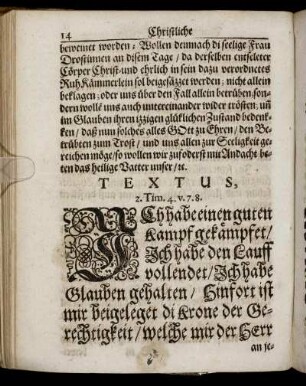 14 Christliche
beweinet worden: Wollen demnach di seelige Frau
Drostinnen an disem Tage / da derselben entseleter
Cörper Christ- und ehrlich in sein dazu verordnetes
Ruh Kämmerlein sol beigesäzzet werden; nicht allein
beklagen / oder uns über den Fall allein betrüben son-
dern wolle uns auch untereinander wider trösten; uñ
im Glauben ihren izzigen glüklichen Zustand beden-
ken / daß nun solches alles GOtt zu Ehren / den Be-
trübten zum Trost / und uns allen zur Seeligkeit ge-
reichen möge / so wollen wir zufoderst mit Andacht be-
ten das heilige Vatter unser / ꝛc.
TEXTUS,
2. Tim. 4. v. 7. 8.
Ich habe einen guten
Kampf gekämpfet /
Ich habe den Lauff
vollendet / Ich habe
Glauben gehalten / Hinfort ist
mir beigeleget di Krone der Ge-
rechtigkeit / welche mir der Herr
an je-